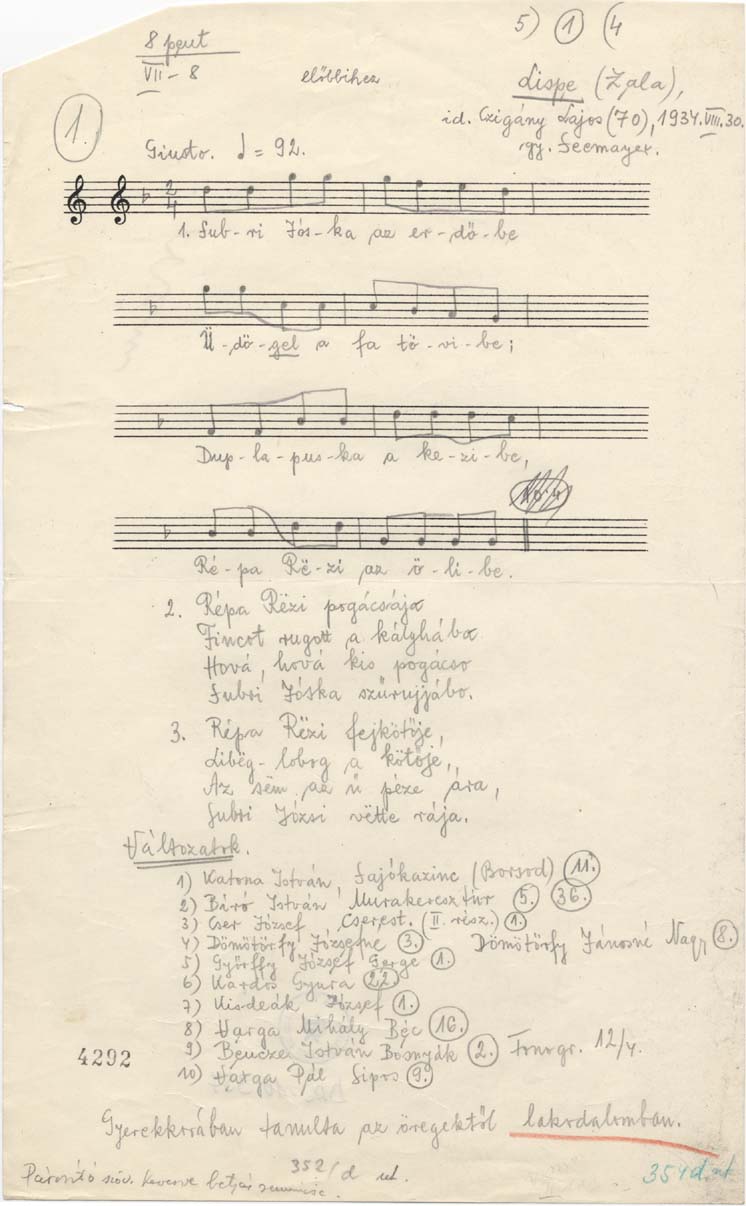 8 pent
VII - 8
előbbihez
5) 1 (4
Lispe (Zala),
id. Czigány Lajos (70), 1934. VIII. 30.
gy. Seemayer.
1.
Giusto. ♩ = 92.
2/4
1. Sub-ri Jós-ka az er-dő-be
Ü-dö-gel a fa tö-vi-be;
Dup-la-pus-ka a ke-zi-be,
Ré-pa Rë-zi az ö-li-be.
2. Répa Rëzi pogácsája
Fincot rugott a kályhába
Hová, hová kis pogácso
Subri Jóska szűrujjábo.
3. Répa Rëzi fejkötője,
Libëg-lobog a kötője,
Az sëm az ű péze ára,
Subri Józsi vëtte rája.
Változatok.
1) Katona István, Sajókazinc (Borsod) 11.
2) Báró István Murakeresztúr 5. 36.
3) Cser József Cserest. (II. rész.) 1.
4) Dömötörfy Józsefne 3. Dömötörfy Jánosné Nagy 8.
5) Győrffy József Gerge 1.
6) Kardos Gyura 22
7) Kisdeák József 1.
8) Varga Mihály Béc 16.
9) Bencze István Bosnyák 2. Fonogr. 12/4.
10) Varga Pál Sipos 9.
4292
Gyerekkorában tanulta az öregektől lakodalomban.
352/d ut.
Párosító szöv. keverve betyár
354 d. ut